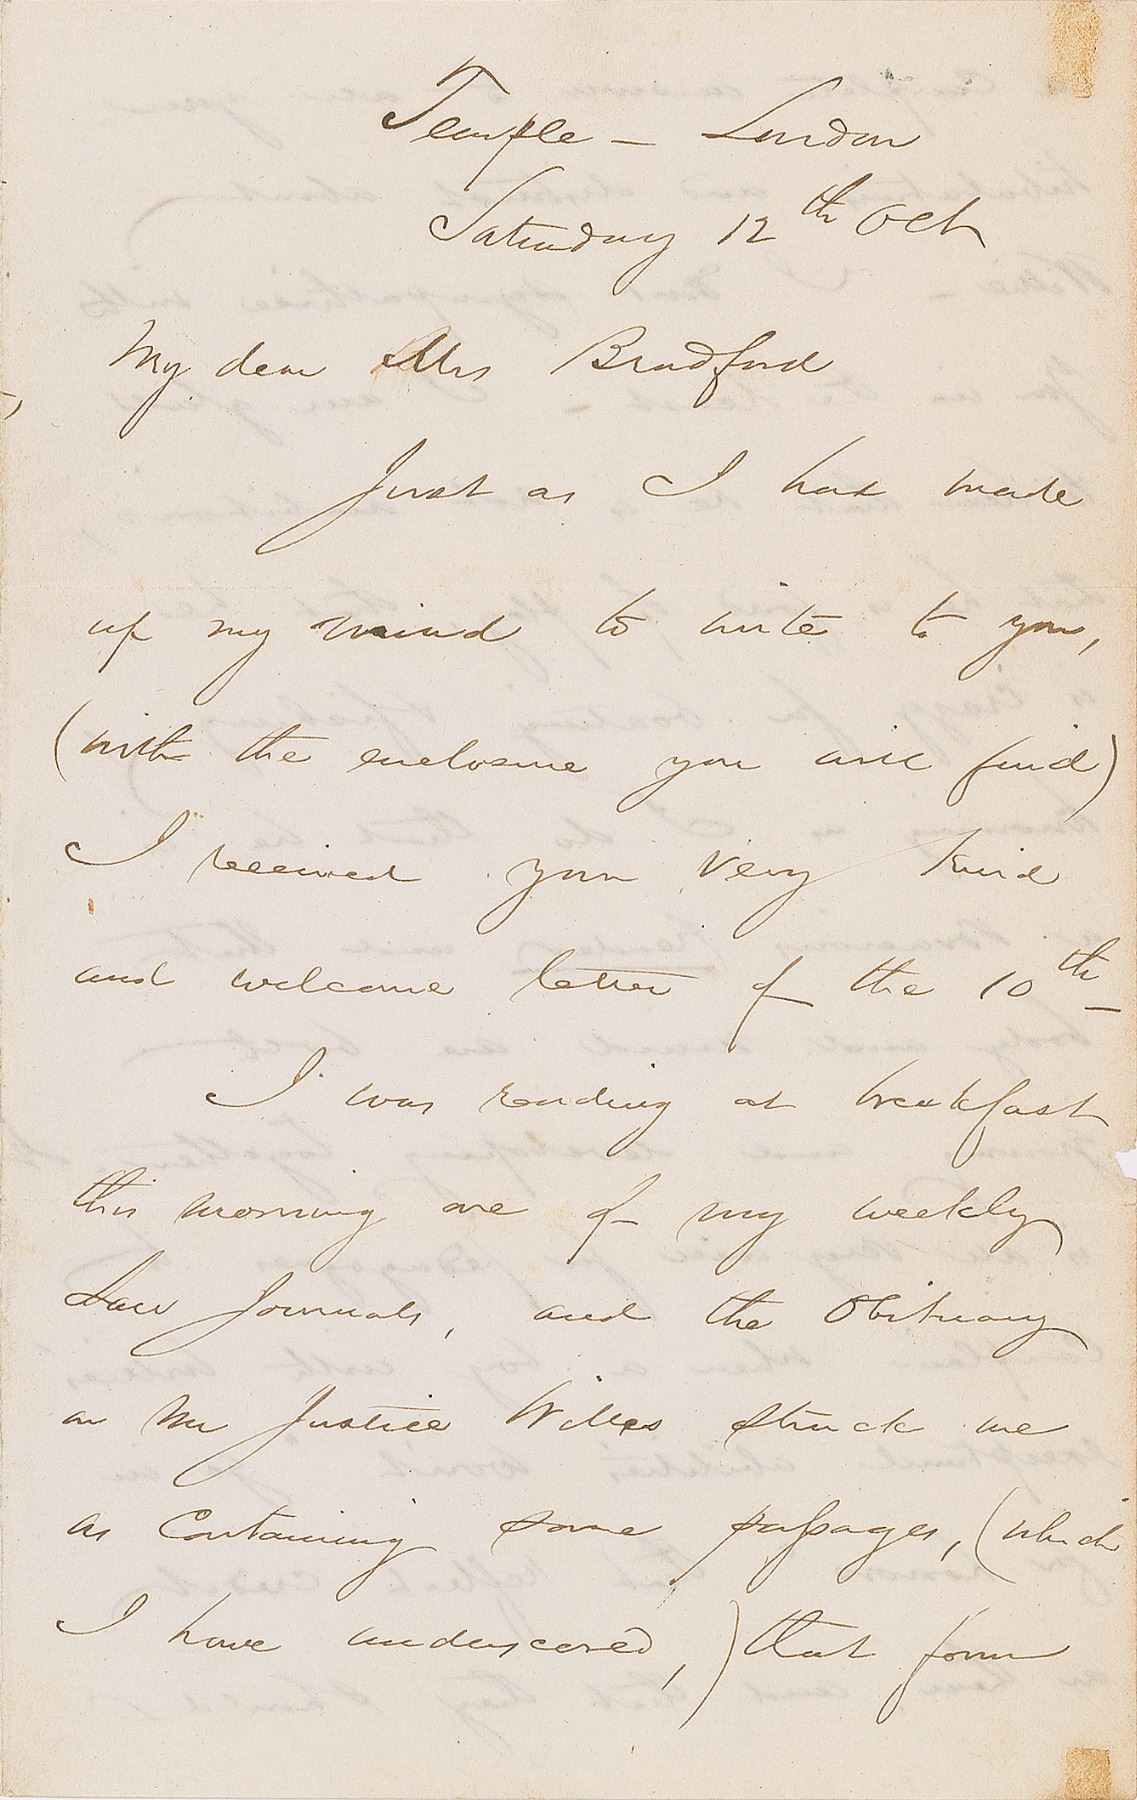 Temple – London
Saturday 12th Oct
My dear Mrs Bradford
Just as I had made
up my mind to write to you,
(with the enclosure you will find)
I received your very kind
and welcome letter of the 10th –
I was reading at breakfast
this morning one of my weekly
Law Journals, and the Obituary
on Mr Justice Willes struck me
as containing some passages, (which
I have underscored,) that form